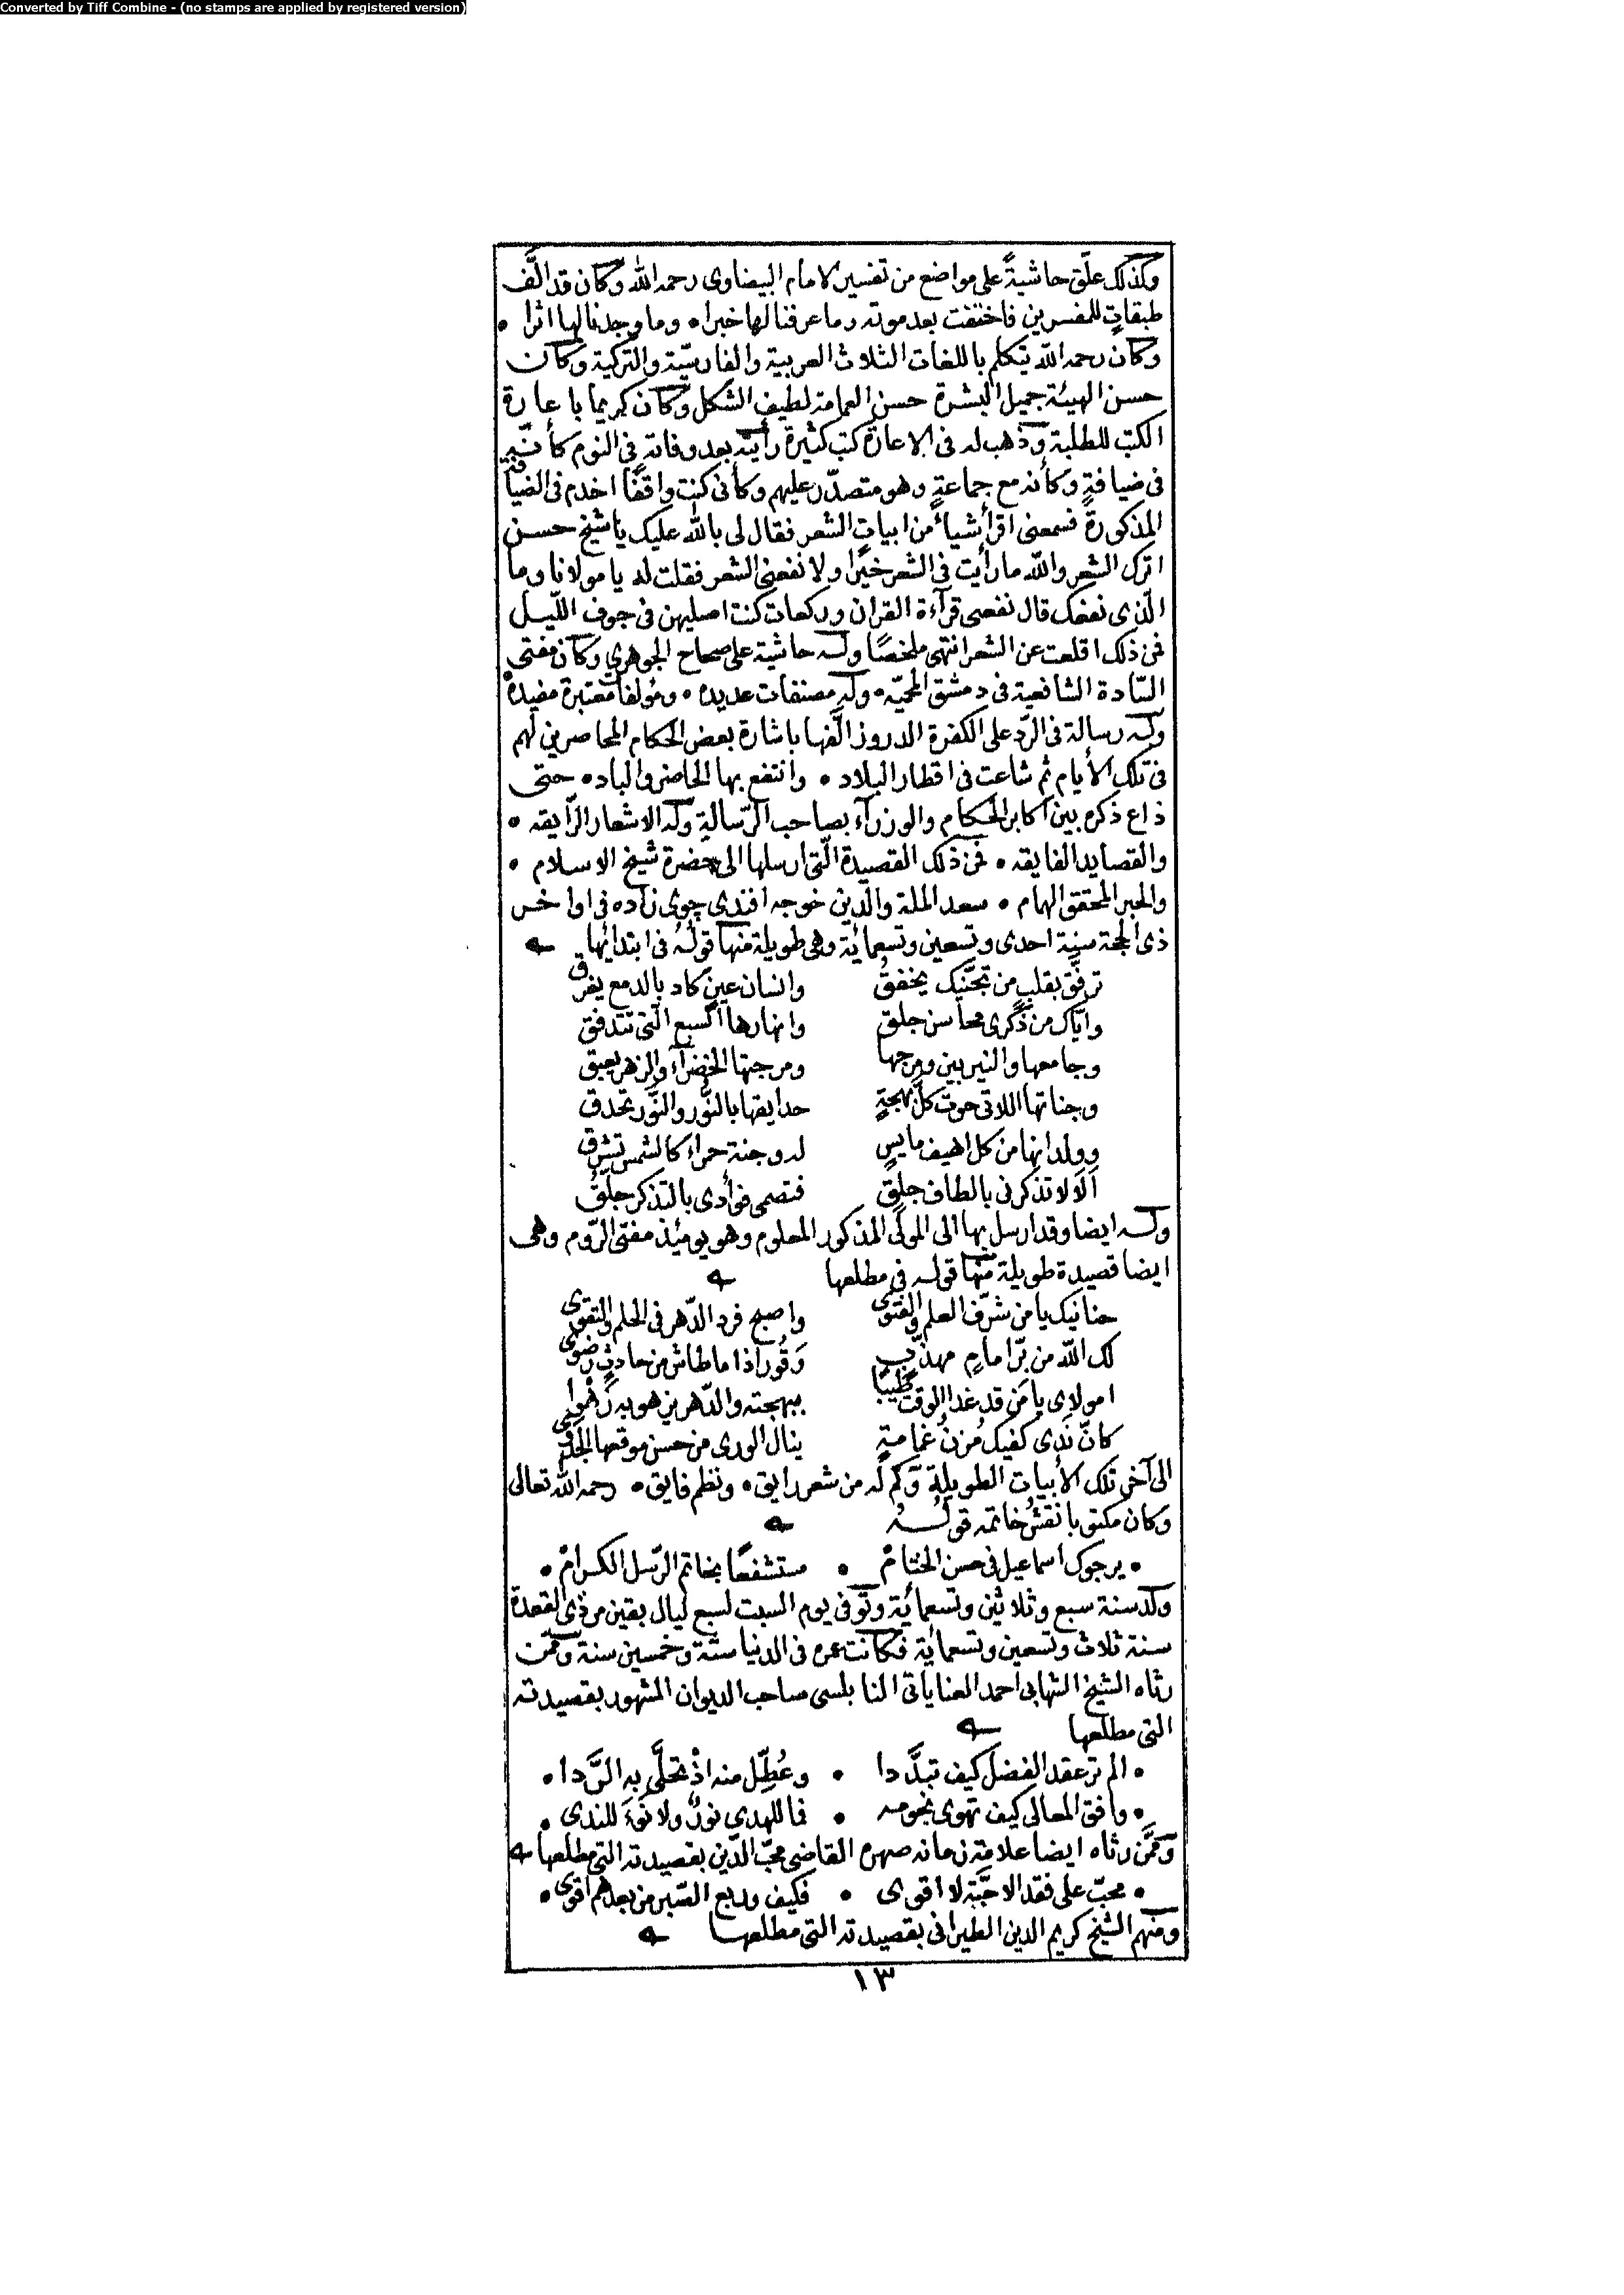 Converted by Tiff Combine - (no stamps are applied by registered version)
وكذلك علّق حاشيةً على مواضع من تفسير الامام البيضاوى رحمه الله وكان قد الَّف
طبقاتٍ للمفسرين فاختفت بعد موته وما عرفنا لها خبرا٠ وما وجدنا لها اثرا ٠
وكان رحمه الله يتكلم باللغات الثلاث العربية والفارسيّة والتركية وكان
حسن الهيئة جميل البشرة حسن العمامة لطيف الشكل وكان كريما باعارة
الكتب للطلبة وذهب له فى الاعارة كتب كثيرة رأيته بعد وفاته فى النوم كأنّنى
فى ضيافةٍ وكأنه مع جماعةٍ وهو متصدّر عليهم وكأنى كنت واقفًا اخدم فى الضيافة
المذكورة فسمعنى اقرأ شياءً من ابيات الشعر فقال لى بالله عليك ياشيخ حسن
اترك الشعر والله ما رأيت فى الشعر خيرًا ولا نفعنى الشعر فقلت له يا مولانا وما
الّذى نفعك قال نفعنى قرآءة القران وركعات كنت اصليهن فى جوف اللّيل
فمن ذلك اقلعت عن الشعر انتهى ملخصًا وله حاشية على صحاح الجوهري وكان مفتى
السّادة الشافعية فى دمشق المحميّه٠ وله مصنفات عديده٠ ومؤلفات معتبرة مفيدة
وله رسالة فى الرّد على الكفرة الدروز الَّفها باشارة بعض الحكام المحاصرين لهم
فى تلك الأيام ثم شاعت فى اقطار البلاد ٠ وانتفع بها الحاضر والباد٠ حتى
ذاع ذكره بين اكابر الحكام والوزرآء بصاحب الرّسالة وله الاشعار الرّايقه ٠
والقصايد الفايقه ٠ فمن ذلك القصيدة الّتى ارسلها الى حضرة شيخ الاسلام ٠
والحبر المحقق الهمام ٠ سعد الملة والدّين خوجه افندى چوى زاده فى اواخر
ذى الحجة سنة احدى وتسعين وتسعمائة وهى طويلة منها قولهُ فى ابتدائها
ترفّق بقلبٍ من تجنّيك يخفقُ وانسان عينٍ كاد بالدمع يغرق
واياك من ذكرى محاسن جلق وانهارها السبع التى تتدفق
وجامعها والنيربين ومرجها ومرجتها الخضرآء والزهر يعبق
وجناتها اللاتى حوت كلّ بهجةٍ حدايقها بالنَّور والنُّور تحدق
وولدانها من كل اهيف مايسٍ له وجنة حمراء كالشمس تشرق
اَلاَ لا تذكرنى بالطاف جلقٍ فتصمى فؤادى بالتذكر جلقُ
وله ايضا وقد ارسل بها الى المولى المذكور المعلوم وهو يومئذ مفتى الرّوم وهى
ايضا قصيدة طويلة منها قوله فى مطلعها
حنانيك يا من شرّف العلم والفتوى واصبح فرد الدّهر فى الحلم والتقوى
لك الله من برّ امامٍ مهذّبٍ وَقُور اذا ما طاش من حادثٍ رضوى
امولاى يا مَن قد غدا الوقت طيبًا ببهجته والدّهر من هو به زهوا
كانّ نَدى كفيك مُزنُ غمامةٍ ينال الورى من حسن موقعها
الى آخر تلك الأبيات الطويلة وكم له من شعر رايق٠ ونظم فايق٠ رحمه الله تعالى
وكان مكتوبا نقشُ خاتمه قولــهُ
٠ يرجوك اسماعيل فى حسن الختامْ ٠ مستشفعًا بخاتم الرّسل الكرامْ ٠
ولد سنة سبع وثلاثين وتسعمائة وتوفى يوم السبت لسبع ليال بقين من ذى القعدة
سنة ثلاث وتسعين وتسعمائة فكانت عمره فى الدنيا ستّة وخمسين سنة وممّن
رثاه الشيخ الشهابى احمد العناياتى النابلسى صاحب الديوان المشهور بقصيدته
التى مطلعها
٠ الم تر عقد الفضل كيف تبدَّدا ٠ وعُطِّل منه اذ تحلَّى به الرَّدا ٠
٠ وافق المعالى كيف تهوى نجومه ٠ فما للهدى نورٌ ولا نوءَ للندى ٠
وممَّن رثاه ايضا علامة زمانه صهره القاضى محبّ الدّين بقصيدته التى مطلعها
٠ محبّ على فقد الاحبّة لا اقوى ٠ فكيف وربع الصّبر من بعدهم اقوى ٠
ومنهم الشيخ كريم الدين الطيرانى بقصيدته التى مطلعها
١٣